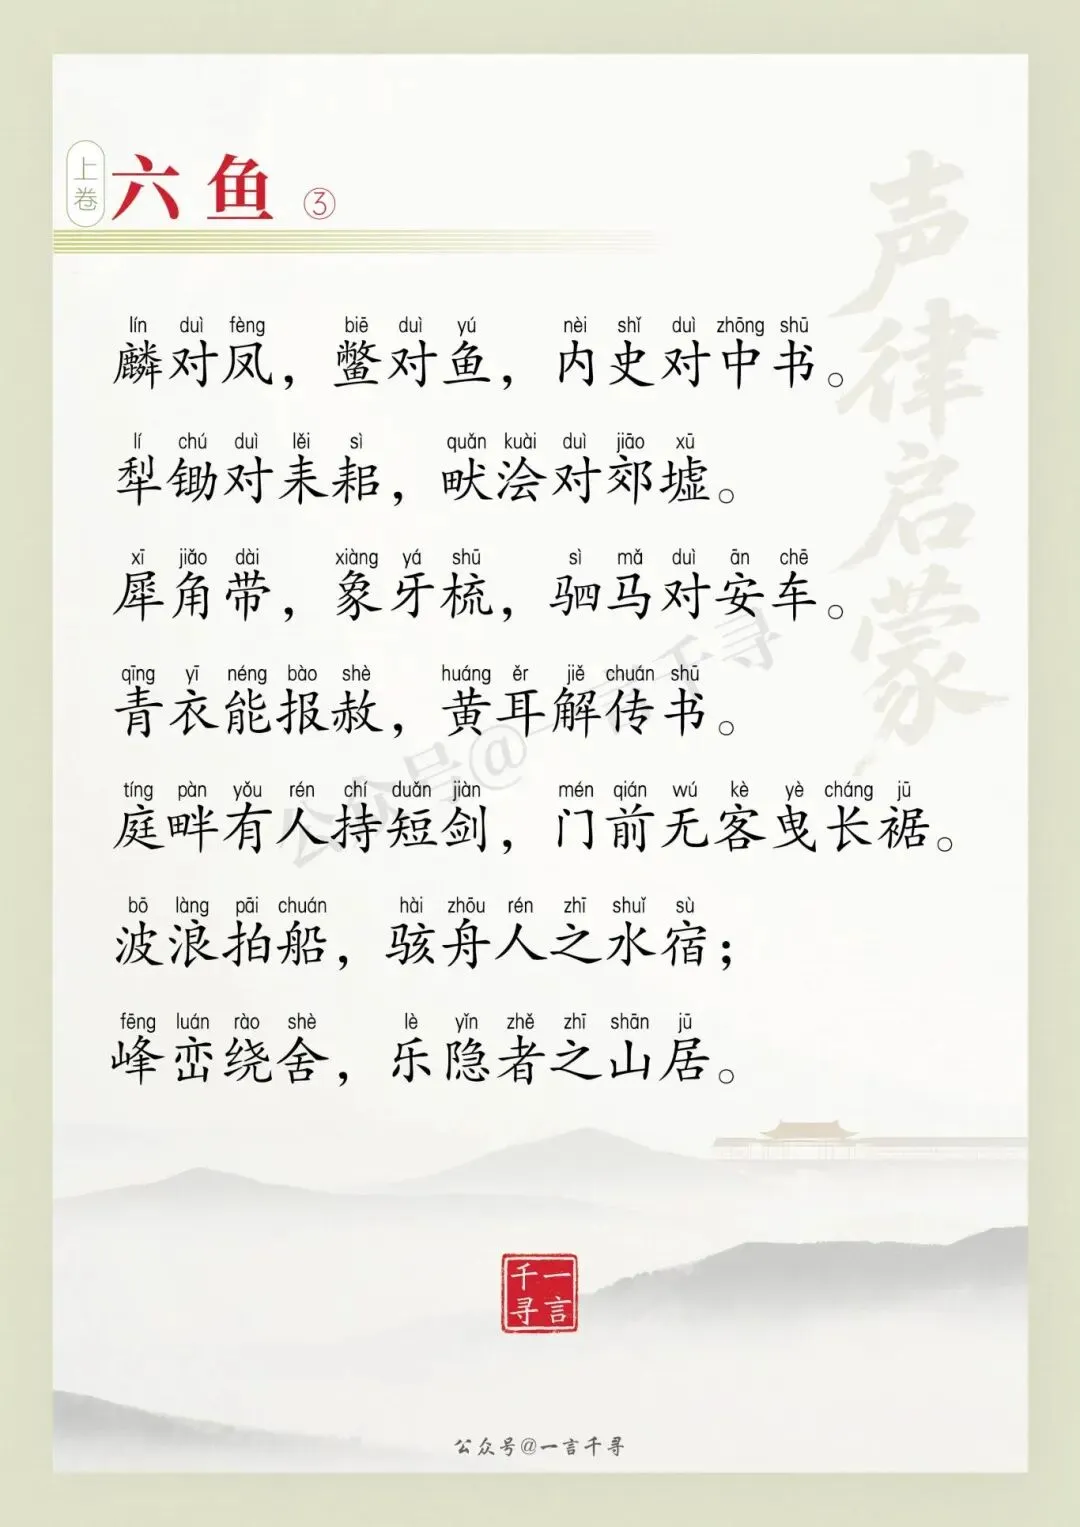 上卷
六鱼 ③
声律启蒙
lín duì fèng biē duì yú nèi shǐ duì zhōng shū
麟对凤，鳖对鱼，内史对中书。
lí chú duì lěi sì quǎn kuài duì jiāo xū
犁锄对耒耜，畎浍对郊墟。
xī jiǎo dài xiàng yá shū sì mǎ duì ān chē
犀角带，象牙梳，驷马对安车。
qīng yī néng bào shè huáng ěr jiě chuán shū
青衣能报赦，黄耳解传书。
tíng pàn yǒu rén chí duǎn jiàn mén qián wú kè yè cháng jū
庭畔有人持短剑，门前无客曳长裾。
bō làng pāi chuán hài zhōu rén zhī shuǐ sù
波浪拍船，骇舟人之水宿；
fēng luán rào shè lè yǐn zhě zhī shān jū
峰峦绕舍，乐隐者之山居。
公众号@一言千寻
一言千寻
公众号@一言千寻